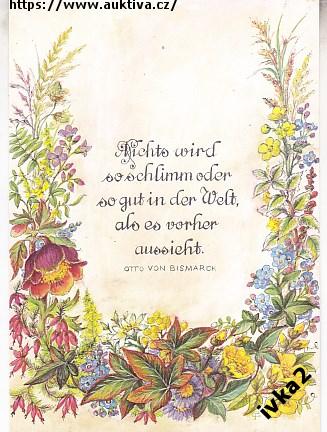 https://www.auktiva.cz/
Nichts wird
so schlimm oder
so gut in der Welt,
als es vorher
aussieht.
OTTO VON BISMARCK
ivka2